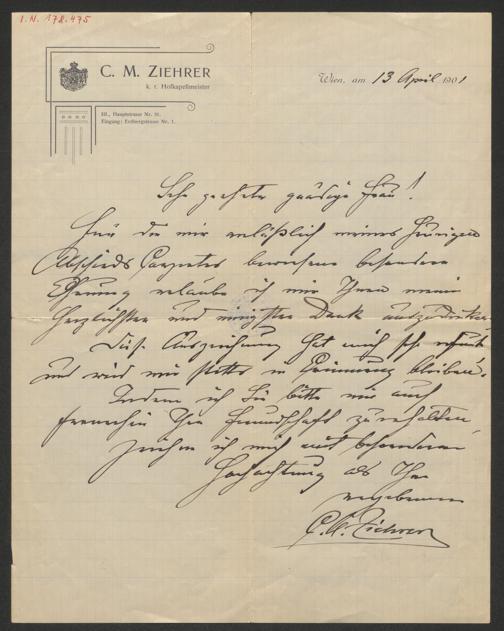 I. N. 178.475
C. M. ZIEHRER
k. k. Hofkapellmeister
III., Hauptstrasse Nr. 31.
Eingang: Erdbergstrasse Nr. 1.
Wien, am 13 April 1901
Sehr geehrte gnädige Frau!
Für die mir anläßlich meines heurigen
Abschieds Conzertes bewiesene besondere
Ehrung erlaube ich mir Ihnen meinen
herzlichsten und innigsten Dank auszudrücken.
Diese Auszeichnung hat mich sehr erfreut
und wird mir stetts in Erinnerung bleiben.
Indem ich Sie bitte mir auch
fernerhin Ihre Freundschaft zu erhalten,
zeichne ich mich mit besonderer
Hochachtung als Ihr
ergebener
C. M. Ziehrer